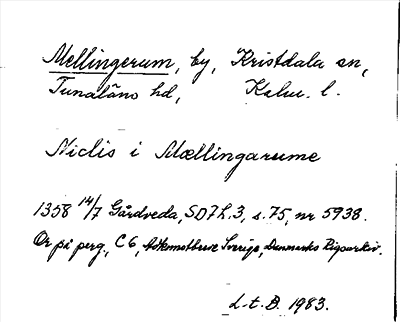 Mellingerum, by, Kristdala sn,
Tunaläns hd, Kalm. l.
Niclis i Mællingarume
1358 14/7 Gårdveda, SD 7 h. 3, s. 75, nr 5938.
Or på perg., C 6, Sverige, Danmarks Rigsarkiv.
L. t. D. 1983.